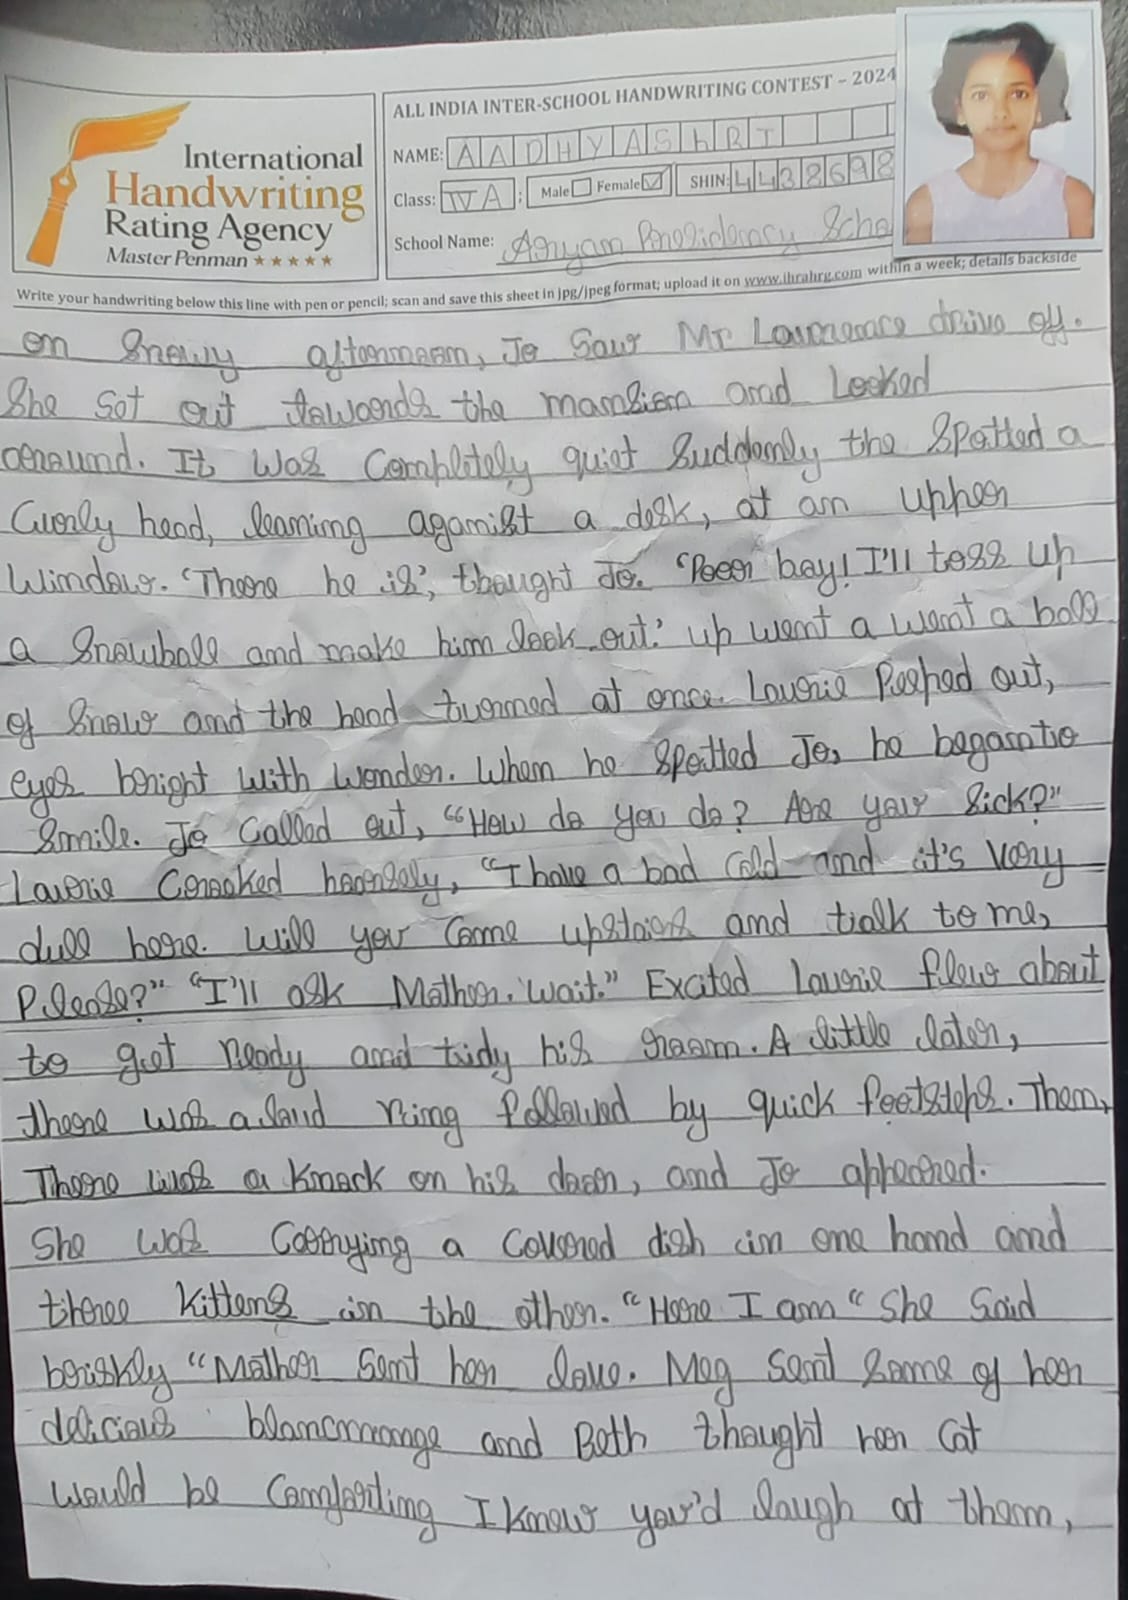 International
Handwriting
Rating Agency
Master Penman ★★★★★
ALL INDIA INTER-SCHOOL HANDWRITING CONTEST – 2024
NAME: AADHYAShRI
Class: IV A Male Female ✓ SHIN: 4438698
School Name: Aryan Presidency Scho
Write your handwriting below this line with pen or pencil; scan and save this sheet in jpg/jpeg format; upload it on www.ihrahrg.com within a week; details backside
on Snowy afternoon, Jo Saw Mr Laurence drive off.
She Set out towards the mansion and Looked
around. It was Completely quiet Suddenly the Spotted a
Curly head, leaning against a desk, at an upper
Window. 'There he is', thought Jo. 'Poor boy! I'll toss up
a Snowball and make him look out.' up went a went a ball
of Snow and the head turned at once. Laurie Peeped out,
eyes bright with wonder. When he Spotted Jo, he began to
Smile. Jo Called out, "How do you do? Are your Sick?"
Laurie Croaked hoarsely, "I have a bad Cold and it's Very
dull here. Will you Come upstairs and talk to me,
Please?" "I'll ask Mother. 'wait." Excited Laurie flew about
to get Ready and tidy his room. A little later,
there was a loud ring followed by quick footsteps. Then,
There was a Knock on his door, and Jo appeared.
She was Carrying a Covered dish in one hand and
three Kittens in the other. "Here I am" She Said
briskly "Mother Sent her love. Meg Sent Some of her
delicious blancmange and Beth thought her Cat
Would be Comforting I Know you'd laugh at them,